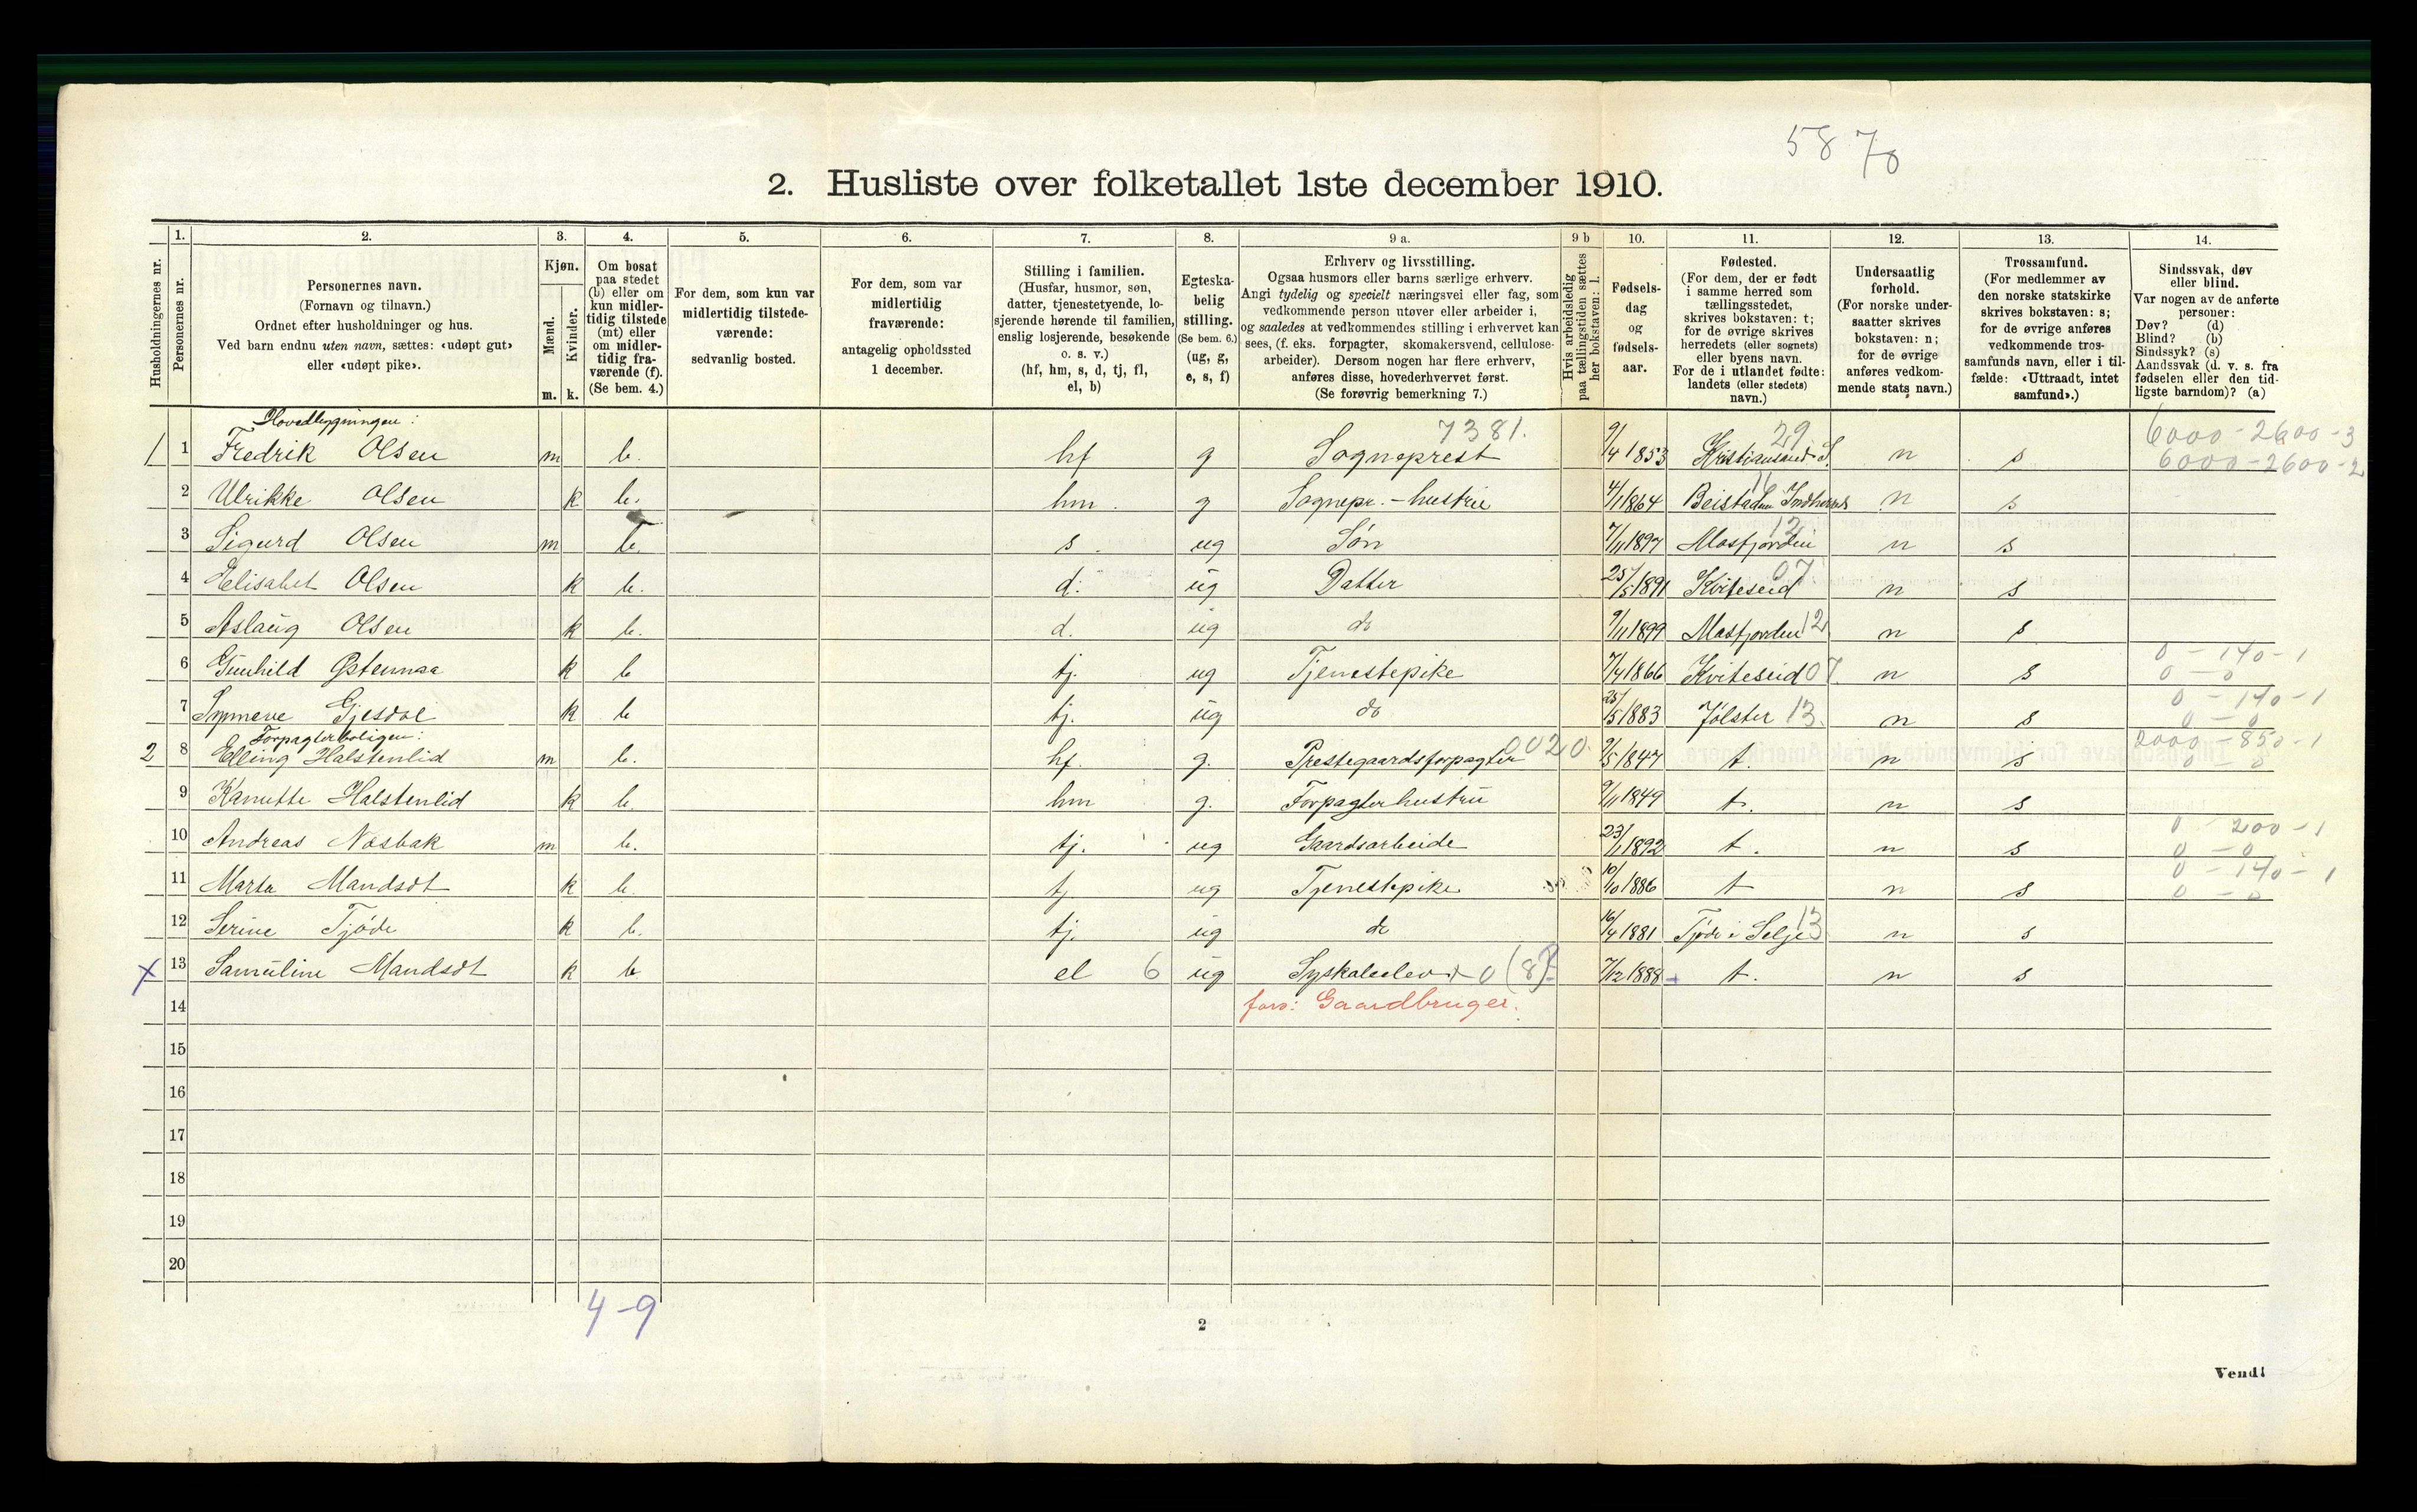 58 70
2. Husliste over folketallet 1ste december 1910.
1. 2. 3. 4. 5. 6. 7. 8. 9 a. 9 b 10. 11. 12. 13. 14.
Husholdningernes nr.
Personernes nr.
Personernes navn.
(Fornavn og tilnavn.)
Ordnet efter husholdninger og hus.
Ved barn endnu uten navn, sættes: «udøpt gut»
eller «udøpt pike».
Kjøn.
Mænd.
Kvinder.
m. k.
Om bosat
paa stedet
(b) eller om
kun midler-
tidig tilstede
(mt) eller
om midler-
tidig fra-
værende (f).
(Se bem. 4.)
For dem, som kun var
midlertidig tilstede-
værende:
sedvanlig bosted.
For dem, som var
midlertidig
fraværende:
antagelig opholdssted
1 december.
Stilling i familien.
(Husfar, husmor, søn,
datter, tjenestetyende, lo-
sjerende hørende til familien,
enslig losjerende, besøkende
o. s. v.)
(hf, hm, s, d, tj, fl,
el, b)
Egteska-
belig
stilling.
(Se bem. 6.)
(ug, g,
e, s, f)
Erhverv og livsstilling.
Ogsaa husmors eller barns særlige erhverv.
Angi tydelig og specielt næringsvei eller fag, som
vedkommende person utøver eller arbeider i,
og saaledes at vedkommendes stilling i erhvervet kan
sees, (f. eks. forpagter, skomakersvend, cellulose-
arbeider). Dersom nogen har flere erhverv,
anføres disse, hovederhvervet først.
(Se forøvrig bemerkning 7.)
Hvis arbeidsledig
paa tællingstiden sættes
her bokstaven: l.
Fødsels-
dag
og
fødsels-
aar.
Fødested.
(For dem, der er født
i samme herred som
tællingsstedet,
skrives bokstaven: t;
for de øvrige skrives
herredets (eller sognets)
eller byens navn.
For de i utlandet fødte:
landets (eller stedets)
navn.)
Undersaatlig
forhold.
(For norske under-
saatter skrives
bokstaven: n;
for de øvrige
anføres vedkom-
mende stats navn.)
Trossamfund.
(For medlemmer av
den norske statskirke
skrives bokstaven: s;
for de øvrige anføres
vedkommende tros-
samfunds navn, eller i til-
fælde: «Uttraadt, intet
samfund».)
Sindssvak, døv
eller blind.
Var nogen av de anførte
personer:
Døv? (d)
Blind? (b)
Sindssyk? (s)
Aandssvak (d. v. s. fra
fødselen eller den tid-
ligste barndom)? (a)
Hovedbygningen:
7381. 29 6000-2600-3
1 1 Fredrik Olsen m b. hf g Sogneprest 9/4 1853 Kristiansand S. n s 6000-2600-2
16
2 Ulrikke Olsen k b. hm. g Sognepr.-hustru 4/1 1864 Beistaden Indherred n s
12
3 Sigurd Olsen m b. s. ug Søn 7/11 1897 Masfjorden n s
07
4 Elisabet Olsen k b. d. ug Datter 25/5 1891 Kviteseid n s
5 Aslaug Olsen k b. d. ug do 9/11 1899 Masfjorden 12 n s
0 - 140 - 1
6 Gunhild Østennaa k b tj. ug Tjenestepike 7/4 1866 Kviteseid 07 n s 0 - 0
0 - 140 - 1
7 Synneve Gjesdal k b tj. ug do 25/5 1883 Jølster 13 n s 0 - 0
Forpagterboligen:
0020 2000-850-1
2 8 Elling Halstenlid m b. hf. g. Prestegaardsforpagter 9/5 1847 t. n s 0 - 0
9 Kanutte Halstenlid k b. hm g. Forpagterhustru 9/11 1849 t. n s
0 - 200 - 1
10 Andreas Nøsbak m b. tj. ug Gaardsarbeide 23/1 1892 t. n s 0 - 0
0 - 140 - 1
11 Marta Mandsdt k b. tj ug Tjenestepike 10/10 1886 t n s 0 - 0
12 Serine Tjøde k b. tj. ug do 16/4 1881 Tjøde i Selje 13 n s
x 13 Samuline Mandsdt k b el 6 ug Syskoleelev 0 (8) 7/12 1888 t. n s
14 fors: Gaardbruger.
15
16
17
18
19
20
4-9
2
Vend!